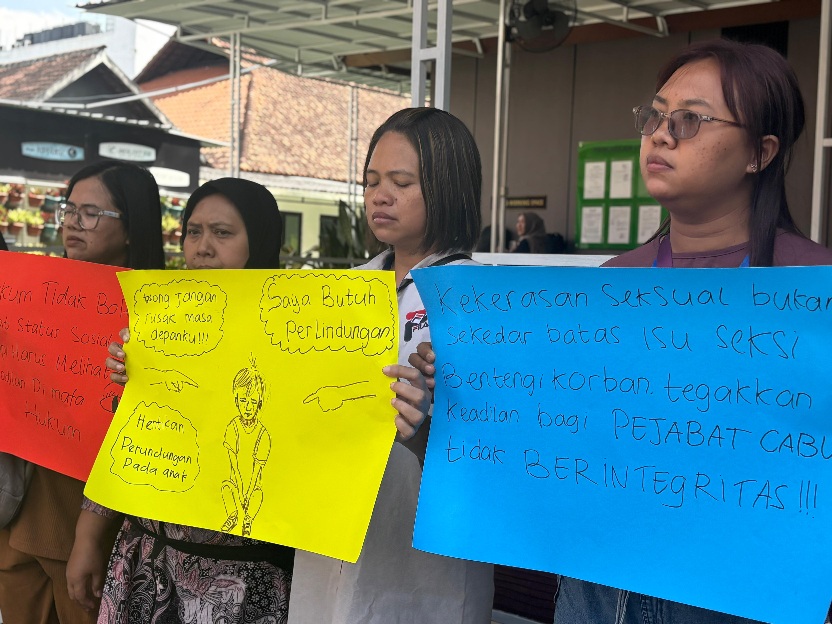 Tidak
Status
Hukum
Tolong Jangan
rusak masa
depanku!!!
Saya Butuh
Perlindungan
Perundungan
Pada anak
Kekerasan seksual bukan
sekedar batas isu seksi
Bentengi korban. tegakkan
keadilan bagi PEJABAT CABU
tidak BERINTEGRITAS!!!